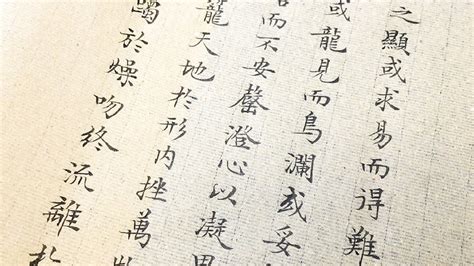 之顯或求易而得難
或龍見而鳥瀾或妥
而不安罄澄心以凝思
籠天地於形內挫萬
躅於燥吻終流離於